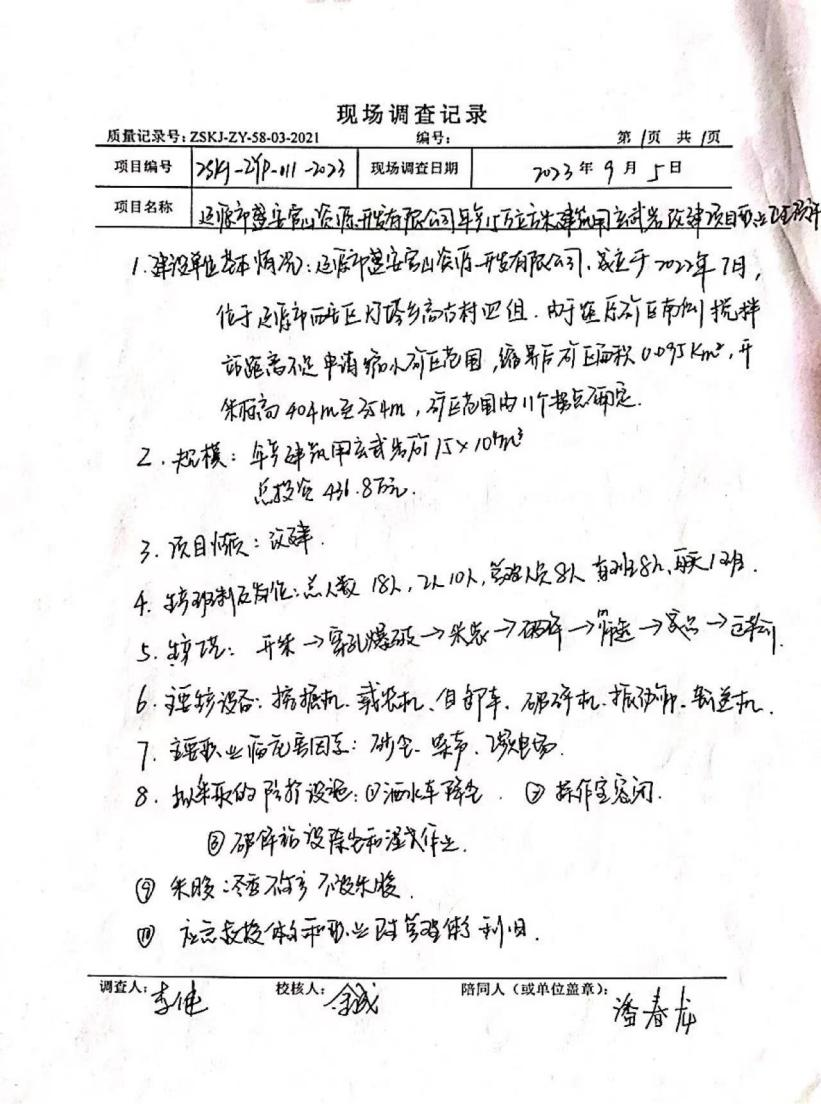 现场调查记录
质量记录号:ZSKJ-ZY-58-03-2021 编号: 第1页 共1页
项目编号 ZSKJ-ZYP-011-2023 现场调查日期 2023年9月5日
项目名称 辽源市盛安宫山资源开发有限公司年产15万立方米建筑用玄武岩改建项目职业卫生
1.建设单位基本情况:辽源市盛安宫山资源开发有限公司,成立于2022年7月,
位于辽源市西安区灯塔乡高古村四组.由于距原矿区南侧搅拌
站距离不足申请缩小矿区范围,缩界后矿区面积0.095Km²,开
采标高404m至354m,矿区范围由11个拐点确定.
2.规模:年产建筑用玄武岩矿15×10⁴m³
总投资436.8万元.
3.项目性质:改建.
4.生产班制及岗位:总人数18人,工人10人,管理人员8人 每班8h,每天1班.
5.生产工艺:开采→穿孔爆破→采装→破碎→筛选→成品→运输.
6.主要生产设备:挖掘机、装载机、自卸车、破碎机、振动筛、输送机.
7.主要职业病危害因素:矽尘、噪声、工频电场.
8.拟采取的防护设施:①洒水车降尘.②操作室密闭.
③破碎站设除尘和湿式作业.
⑨采暖:冬季不生产不设采暖.
⑩应急救援体系和职业卫生管理体系利旧.
调查人:李健 校核人:金成 陪同人(或单位盖章):潘春龙